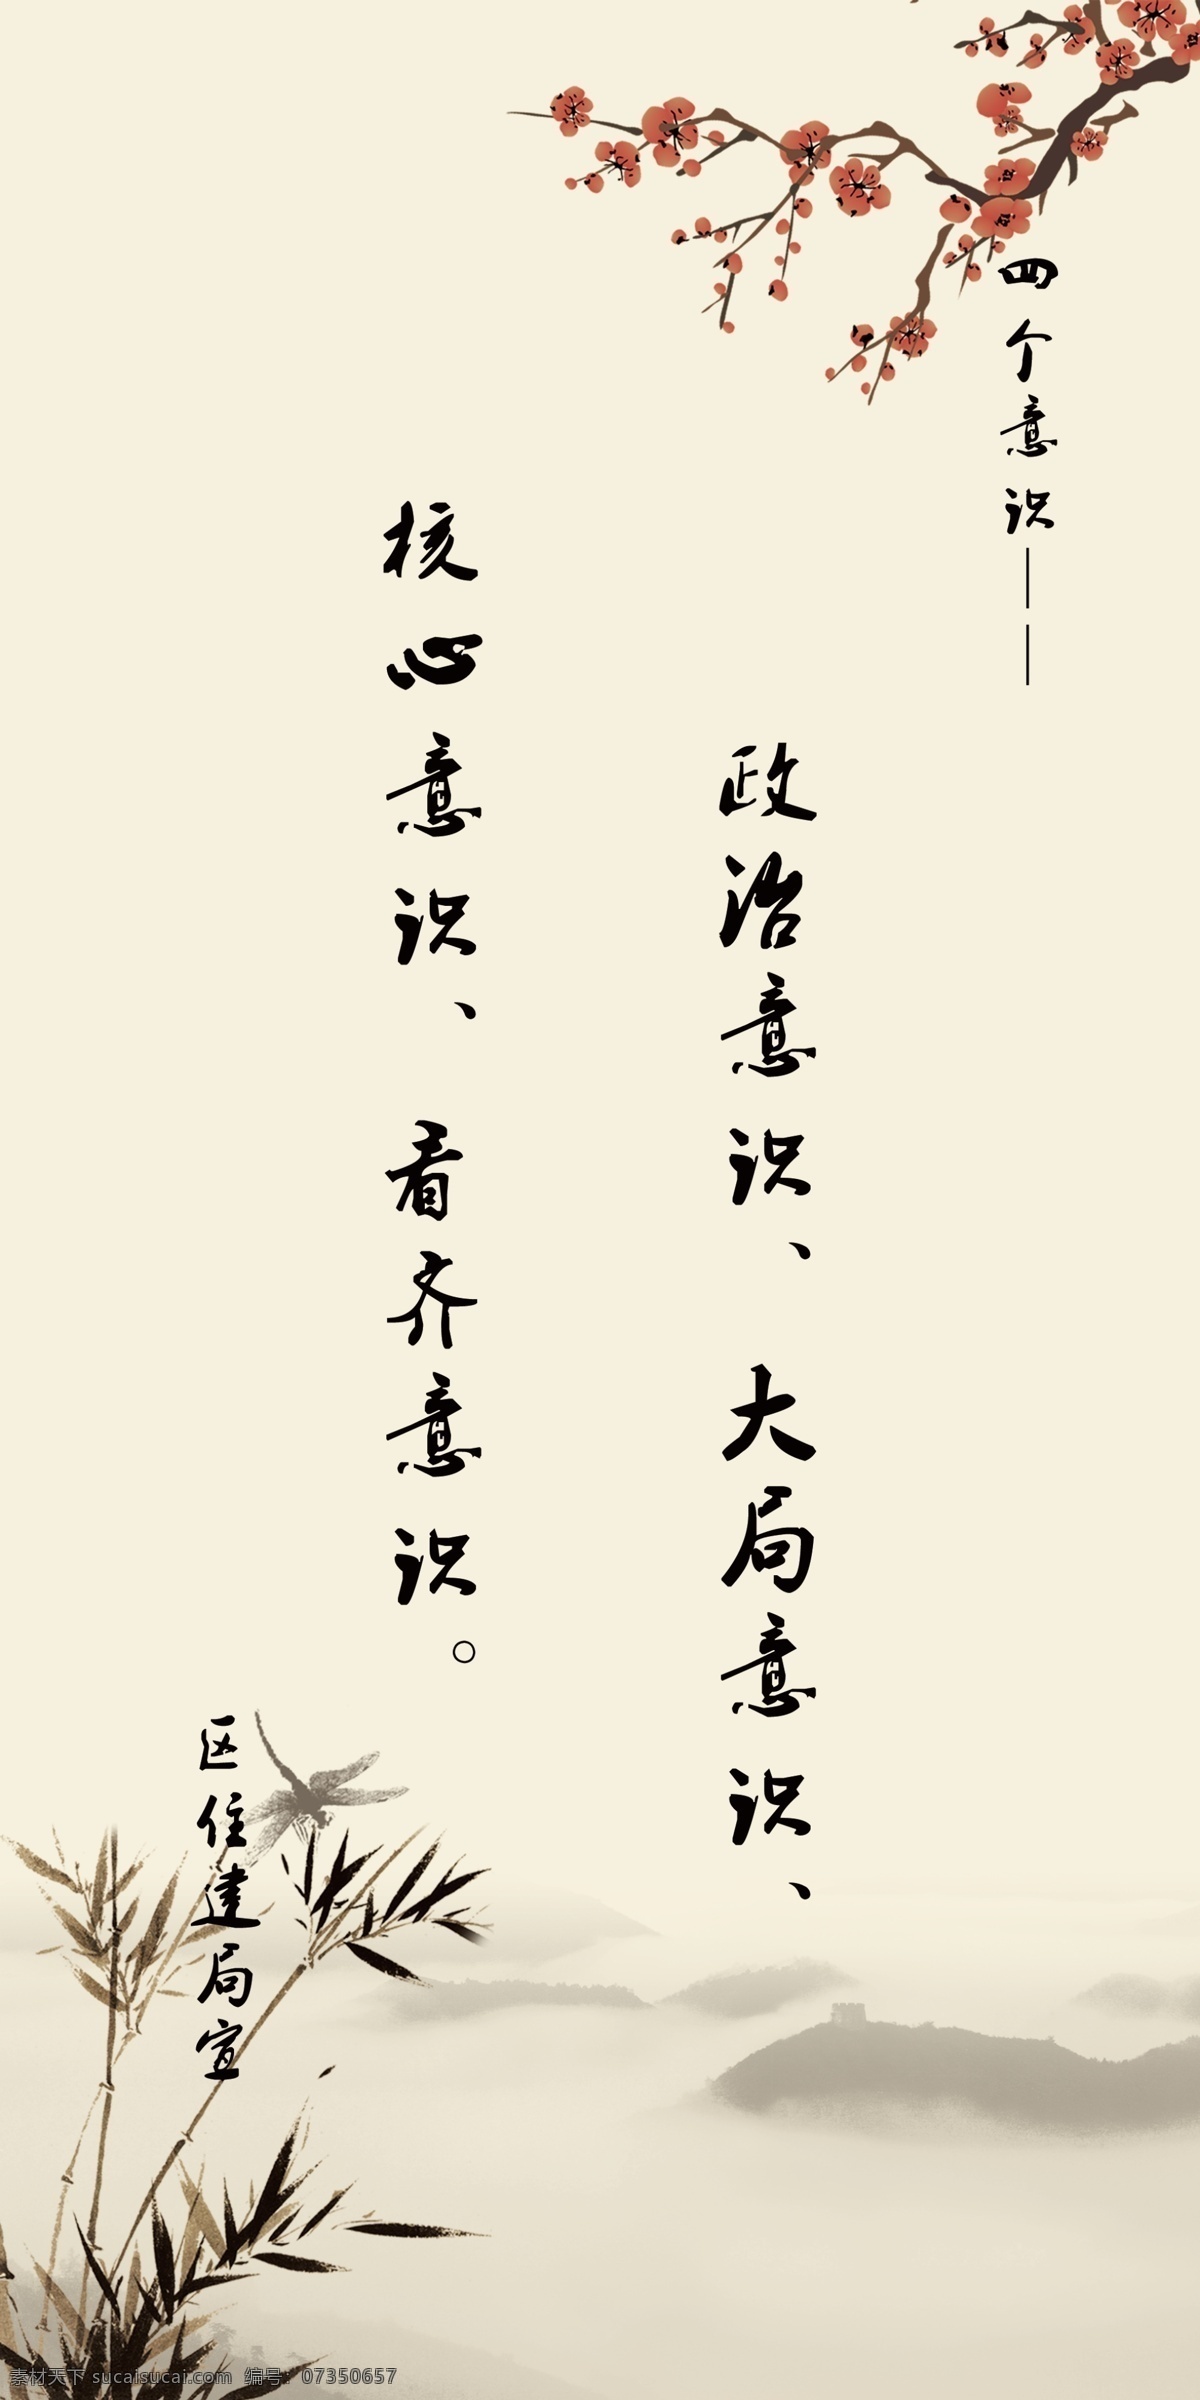 四个意识——
政治意识、大局意识、
核心意识、看齐意识。
区住建局宣
素材天下 sucaisucai.com 编号：07350657